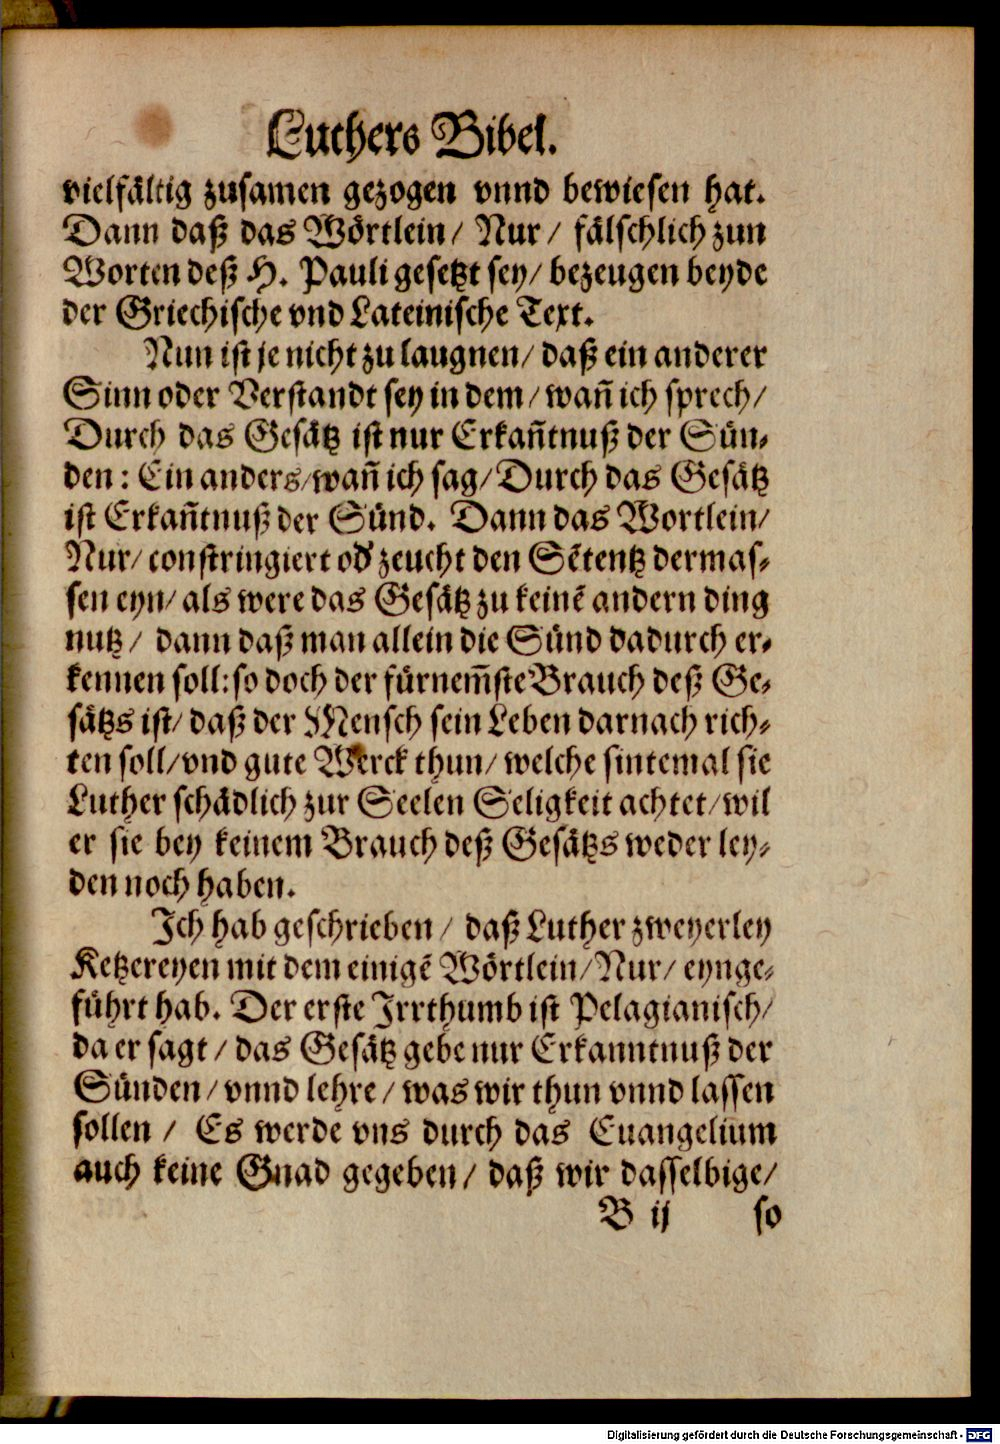 Luthers Bibel.
vielfältig zusamen gezogen vnnd bewiesen hat.
Dann daß das Wörtlein/ Nur/ fälschlich zun
Worten deß H. Pauli gesetzt sey/ bezeugen beyde
der Griechische vnd Lateinische Text.
Nun ist je nicht zu laugnen/ daß ein anderer
Sinn oder Verstandt sey in dem/ wañ ich sprech/
Durch das Gesätz ist nur Erkañtnuß der Sün⸗
den: Ein anders/wañ ich sag/ Durch das Gesätz
ist Erkañtnuß der Sünd. Dann das Wortlein/
Nur/ constringiert od' zeucht den Sētentz dermas⸗
sen eyn/ als were das Gesätz zu keinē andern ding
nutz/ dann daß man allein die Sünd dadurch er⸗
kennen soll: so doch der fürnem̄ste Brauch deß Ge⸗
sätzs ist/ daß der Mensch sein Leben darnach rich⸗
ten soll/vnd gute Werck thun/ welche sintemal sie
Luther schädlich zur Seelen Seligkeit achtet/wil
er sie bey keinem Brauch deß Gesätzs weder ley⸗
den noch haben.
Ich hab geschrieben/ daß Luther zweyerley
Ketzereyen mit dem einigē Wörtlein/Nur/ eynge⸗
führt hab. Der erste Irrthumb ist Pelagianisch/
da er sagt/ das Gesätz gebe nur Erkanntnuß der
Sünden/ vnnd lehre/ was wir thun vnnd lassen
sollen/ Es werde vns durch das Euangelium
auch keine Gnad gegeben/ daß wir dasselbige/
B ij so
Digitalisierung gefördert durch die Deutsche Forschungsgemeinschaft - DFG